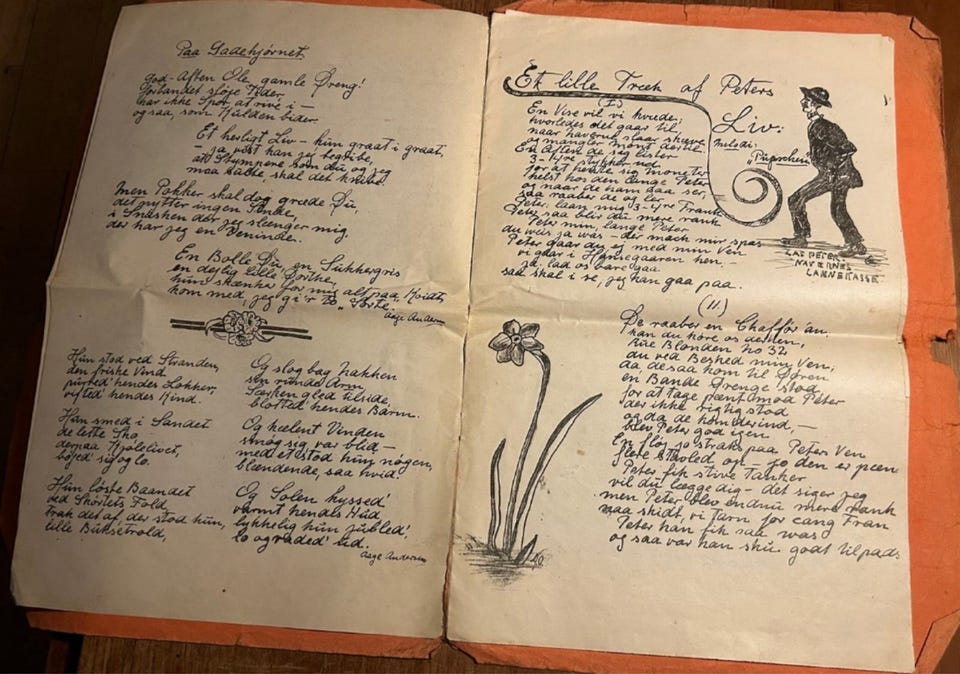 Paa Gadehjørnet
God-Aften Ole, gamle Dreng!
Forbandet sløje Tider
har ikke Spor at rive i —
og saa, som Kulden bider.
Et herligt Liv — hun graat i graat,
— ja vist kan jeg
att Stympere som du og jeg
maa kalde, skal det knibe.
Men Pokker skal dog græde Du,
det nytter ingen Ting,
i Snasken dér jeg slænger mig,
der har jeg en Veninde.
En Bolle Du, en Sukkergris
en dejlig lille Dorthe,
hun skænker for mig alt paa Kridt,
kom med, jeg gi'r to „Sorte.
Aage Andersen
Hun stod ved Stranden,
den friske Vind
purred' hendes Lokker,
vifted' hendes Kind.
Hun smed i Sandet
de lette Sko,
derpaa Kjolelivet,
bøjed' sig og lo.
Hun løste Baandet
ved Skørtets Fold,
trak det af, der stod hun,
lille Buksetrold,
Og slog bag Nakken
sin runde Arm,
Særken gled tilside,
blotted hendes Barm.
Og keelent Vinden
smøg sig var blid —
med et stod hun nøgen,
blændende, saa hvid!
Og Solen kyssed'
varmt hendes Hud,
lykkelig hun jubled'
lo og raabed' ud.
Aage Andersen
Et lille Træk af Peters
Liv:
(I.)
melodi:
Püpschen
En Vise vil vi kvæde;
hvorledes det gaar til,
naar havenue slaar skæve
og mangler mønt dertil
En Aften de sig lister
3-4re stykker ud
for at hente sig mønster
helst hos den lange Peter
og naar de ham daa ser,
saa raaber de og ler
Peter, laan mig 3-4re Frank
Peter saa blir du mere rank
Peter min, lange Peter
du wais ja was — der mach mir spas
Peter gaar du ej med min Ven
vi gaar i Hønsegaaren hen,
ja. lad os bare gaa
saa skal i se, jeg kan gaa paa.
LAD PETER
NAVERNES
LAANEKASSE
(II.)
De raaber en Chaffør an.
kan du höre os derhen,
Rue Blonden no 32
du ved Besked min Ven,
da de saa kom til Døren
en Bande Drenge stod
for at tage pænt mod Peter
der ikke rigtig stod
og da de kom derind, —
blev Peter god igen
En fløj jo straks paa Peters Ven
flere stavled op — jo den er pæen
Peter fik stive Tanker
vil du lægge dig — det siger jeg
men Peter blev endnu mere rank
naa skidt, vi tarn for cang Fran
Peter han fik saa was
og saa var han sku godt tilpads